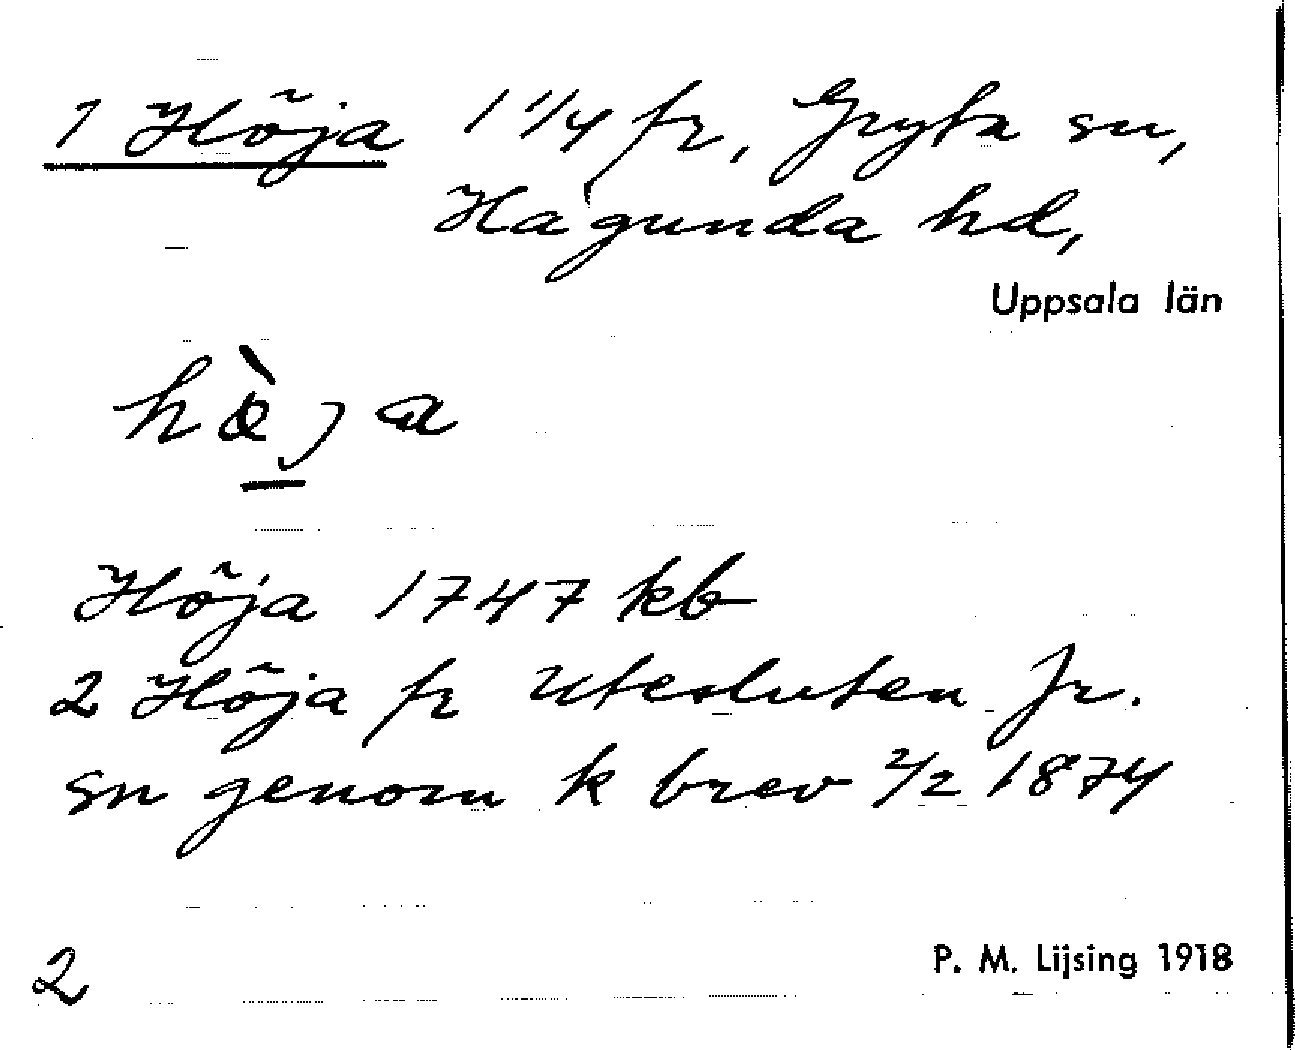 1 Höja 1 1/4 fr, Gryta sn,
Hagunda hd,
Uppsala län
hö̀ja
Höja 1747 kb
2 Höja fr utesluten Jr.
sn genom k brev 2/2 1874
P. M. Lijsing 1918
2